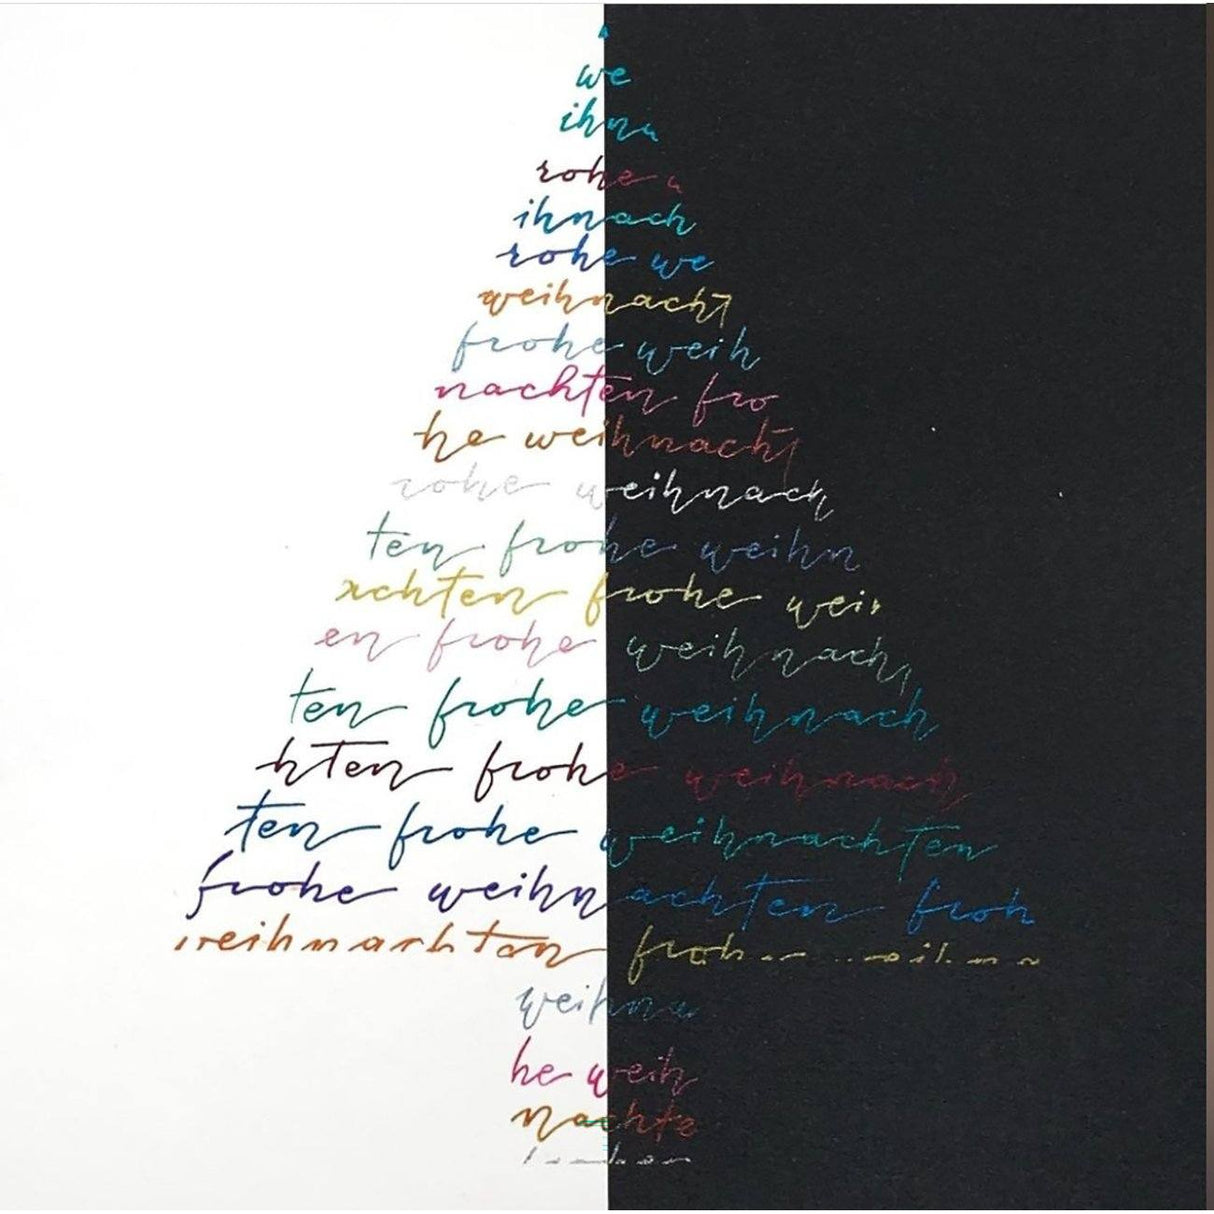 we
ihna
rohe w
ihnach
rohe we
weihnacht
frohe weih
nachten fro
he weihnacht
rohe weihnach
ten frohe weihn
achten frohe wei
en frohe weihnach
ten frohe weihnach
hten frohe weihnach
ten frohe weihnachten
frohe weihnachten froh
weihnachten
weihna
he weih
nachte